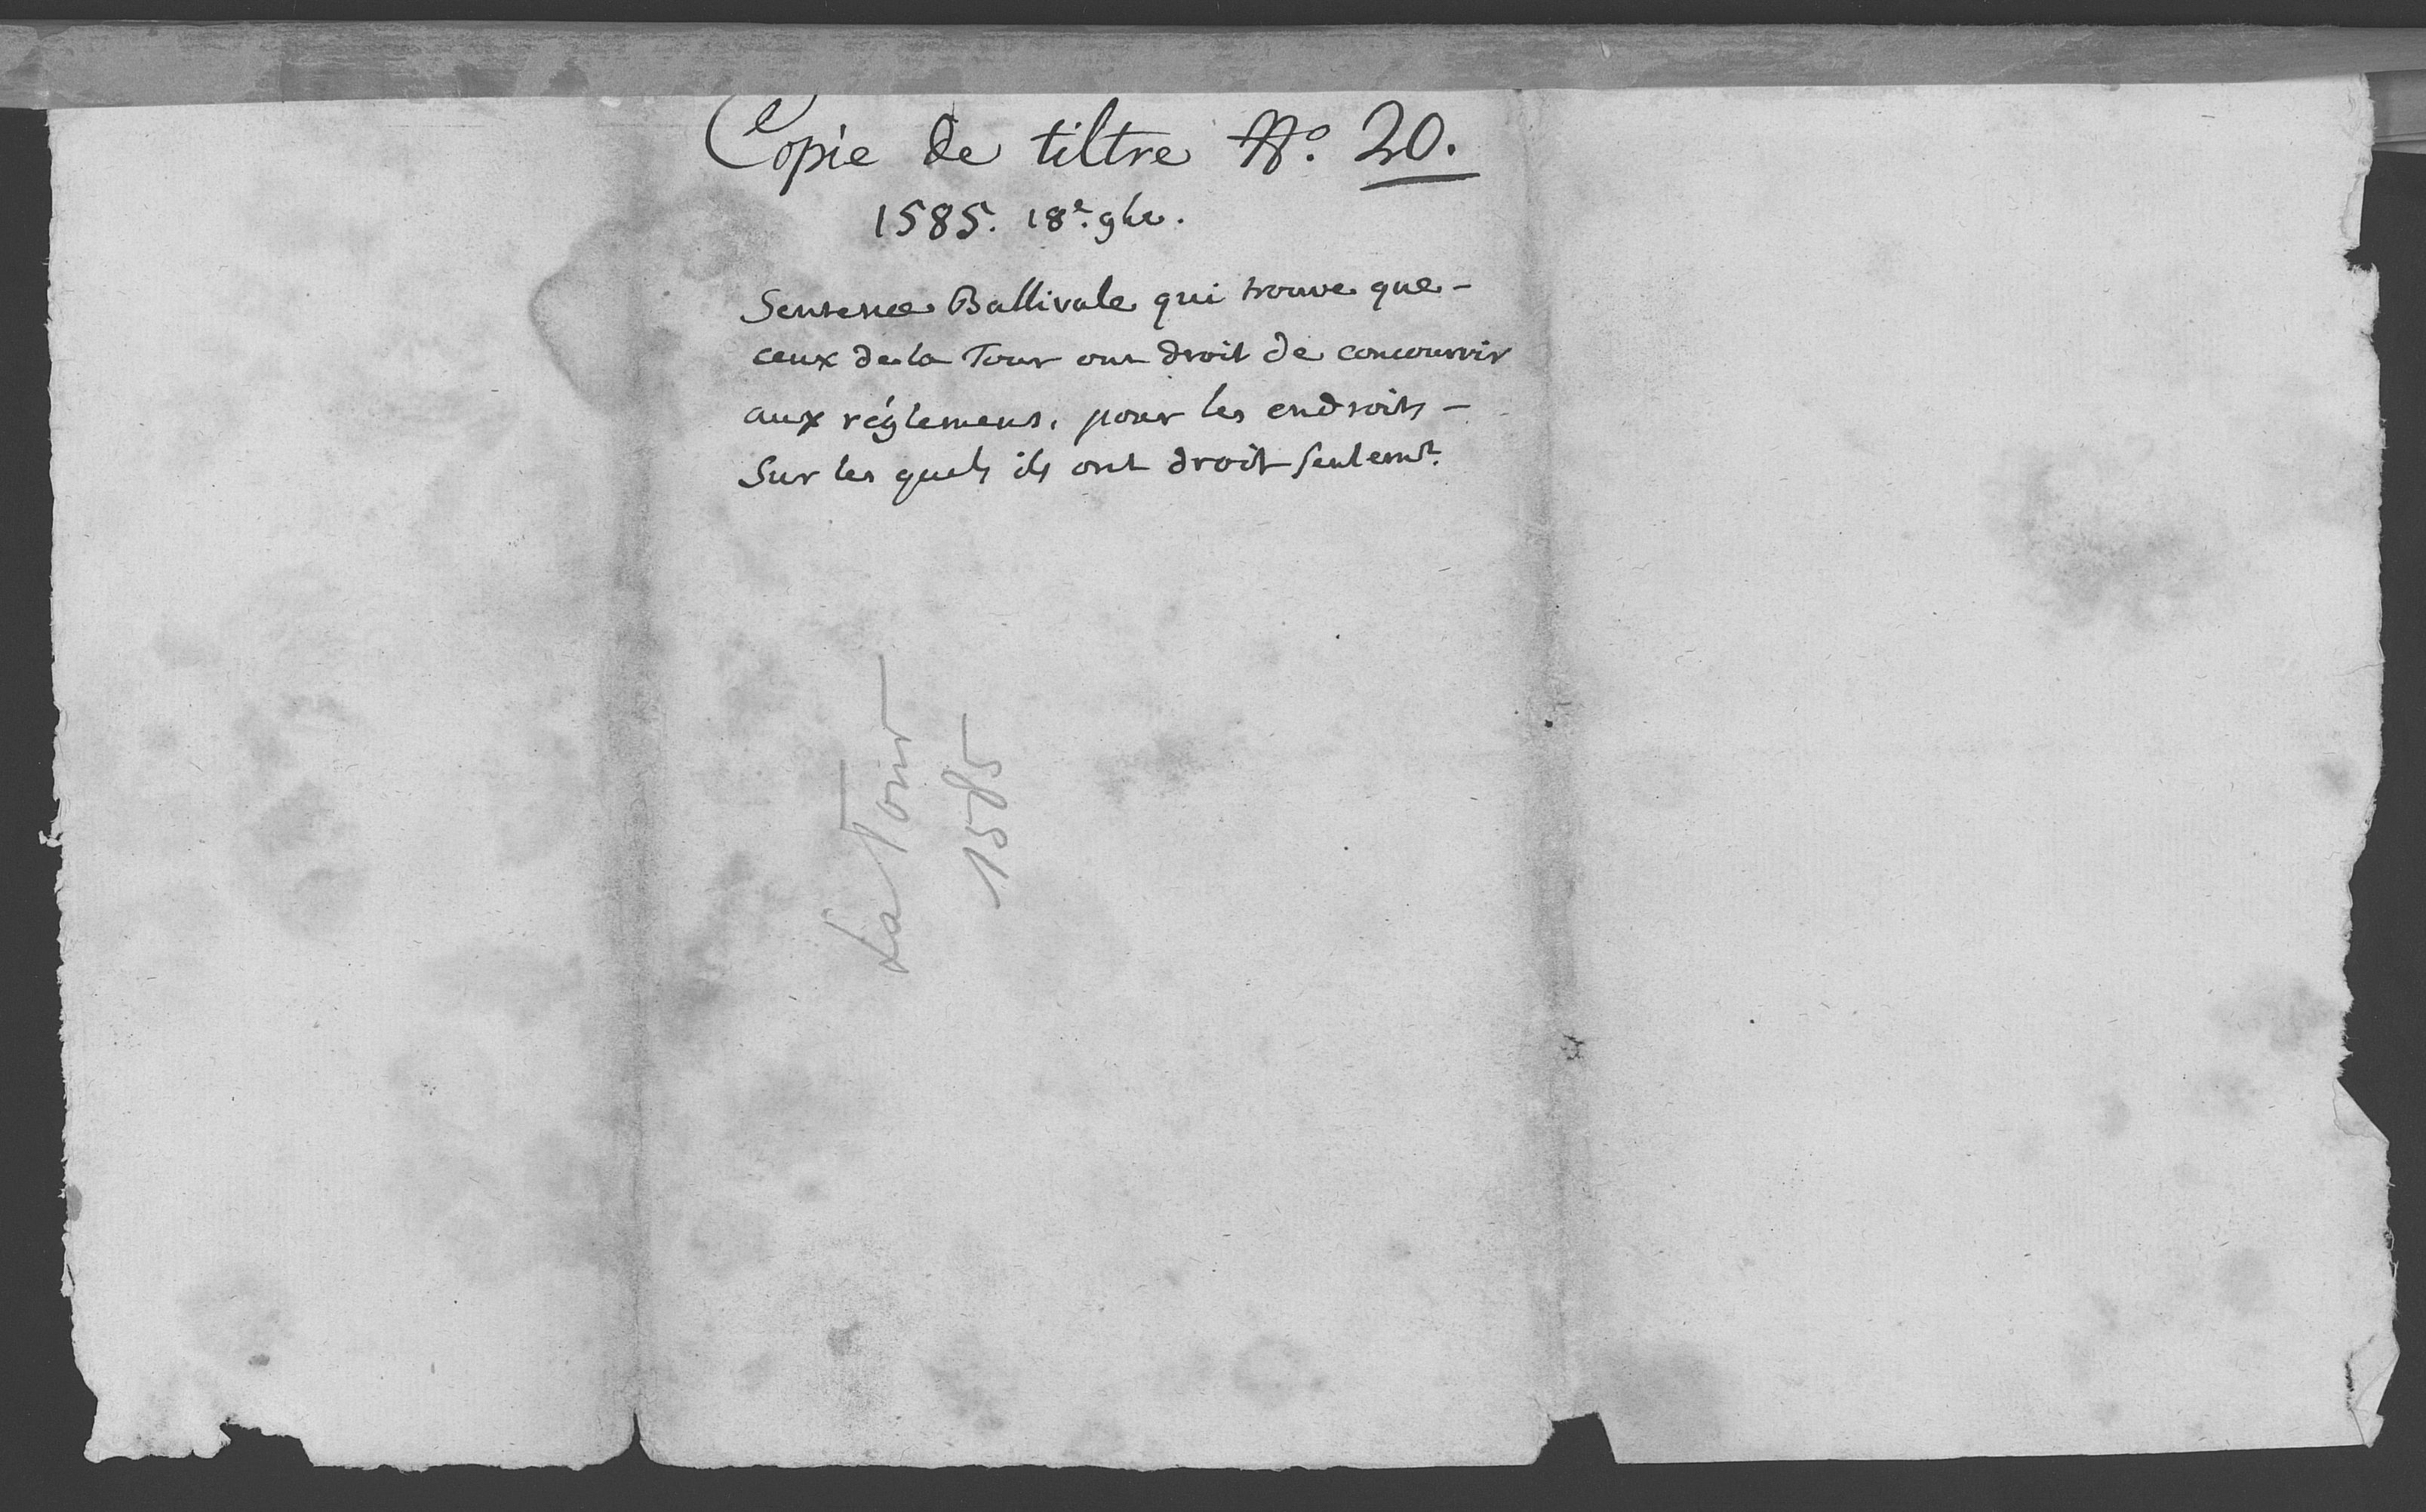 Copie de tiltre N.º 20.
1585. 18.e 9bre.
Sentence Ballivale qui trouve que -
ceux de la Tour ont droit de concourrir
aux réglemens, pour les endroits -
Sur les quels ils ont droit seulemt.
La Tour
1585